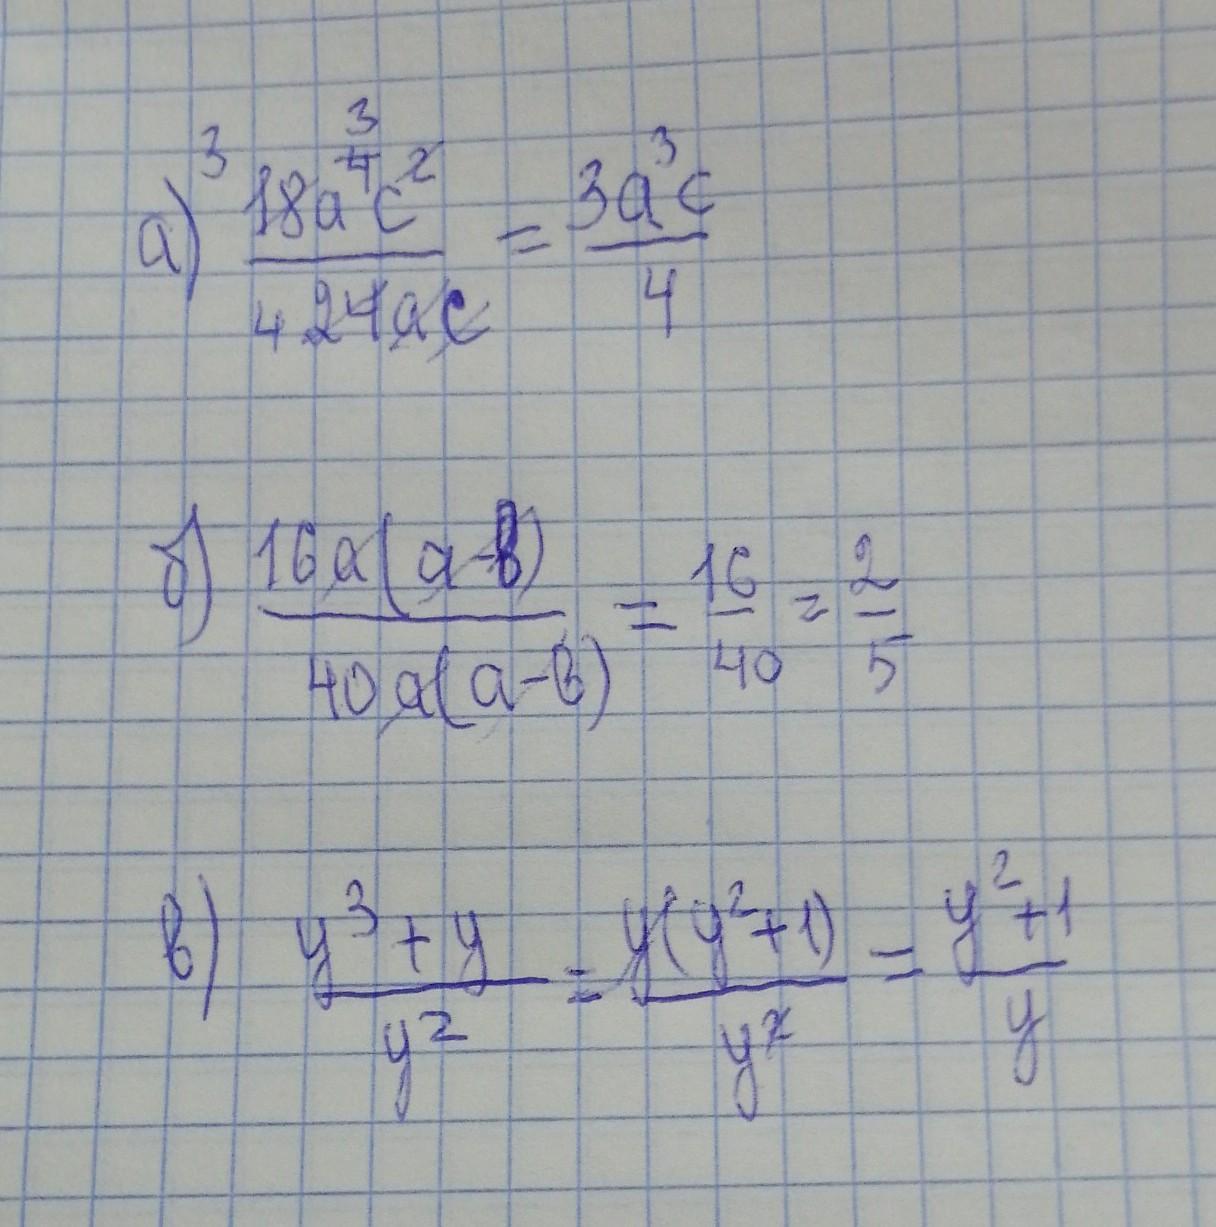 а) ³ 18a⁴ ³c² / 4 24ac = 3a³c / 4
б) 16a(a-b) / 40a(a-b) = 16/40 = 2/5
в) y³+y / y² = y(y²+1) / y² = y²+1 / y